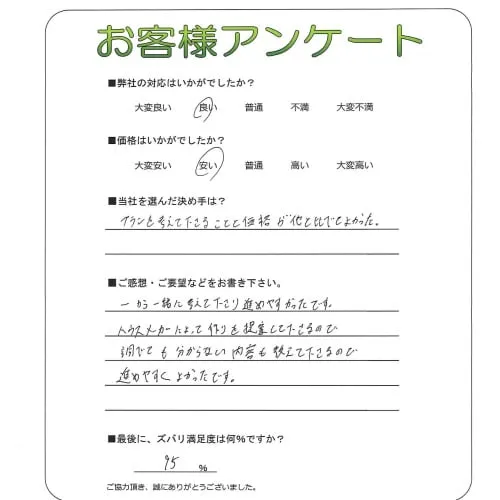 お客様アンケート
■弊社の対応はいかがでしたか？
大変良い 良い 普通 不満 大変不満
■価格はいかがでしたか？
大変安い 安い 普通 高い 大変高い
■当社を選んだ決め手は？
プランを考えて下さることと価格が他と比べてよかった。
■ご感想・ご要望などをお書き下さい。
一から一緒に考えて下さり進めやすかったです。
ハウスメーカーによって作りも提案して下さるので
調べても分からない内容も教えて下さるので
進めやすくよかったです。
■最後に、ズバリ満足度は何％ですか？
95 ％
ご協力頂き、誠にありがとうございました。